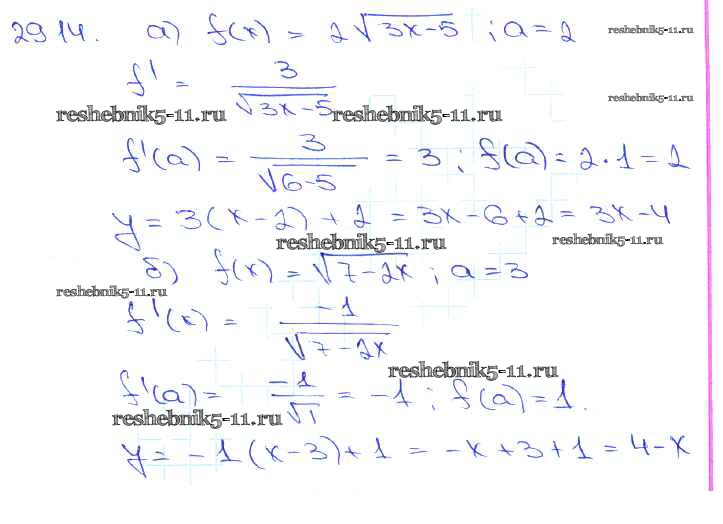 29.14. а) f(x) = 2√(3x-5) ; a = 2 reshebnik5-11.ru
f' = 3/√(3x-5) reshebnik5-11.ru
reshebnik5-11.ru reshebnik5-11.ru
f'(a) = 3/√(6-5) = 3 ; f(a) = 2·1 = 2
y = 3(x-2)+2 = 3x-6+2 = 3x-4
reshebnik5-11.ru reshebnik5-11.ru
б) f(x) = √(7-2x) ; a = 3
reshebnik5-11.ru
f'(x) = -1/√(7-2x)
reshebnik5-11.ru
f'(a) = -1/√1 = -1 ; f(a) = 1.
reshebnik5-11.ru
y = -1(x-3)+1 = -x+3+1 = 4-x